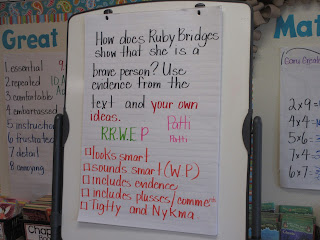 Great
1. essential
2. repeated
3. comfortable
4. embarrassed
5. instruction
6. frustrated
7. detail
8. annoying
How does Ruby Bridges
show that she is a
brave person? Use
evidence from the
text and your own
ideas.
R.R.W.E P
Patti
Patti
looks smart
sounds smart (W.P)
includes evidence
includes plusses/commers
Tigffy and Nykma
Mat
2×9=
4×4=
5×6=
7×4=
6×7=